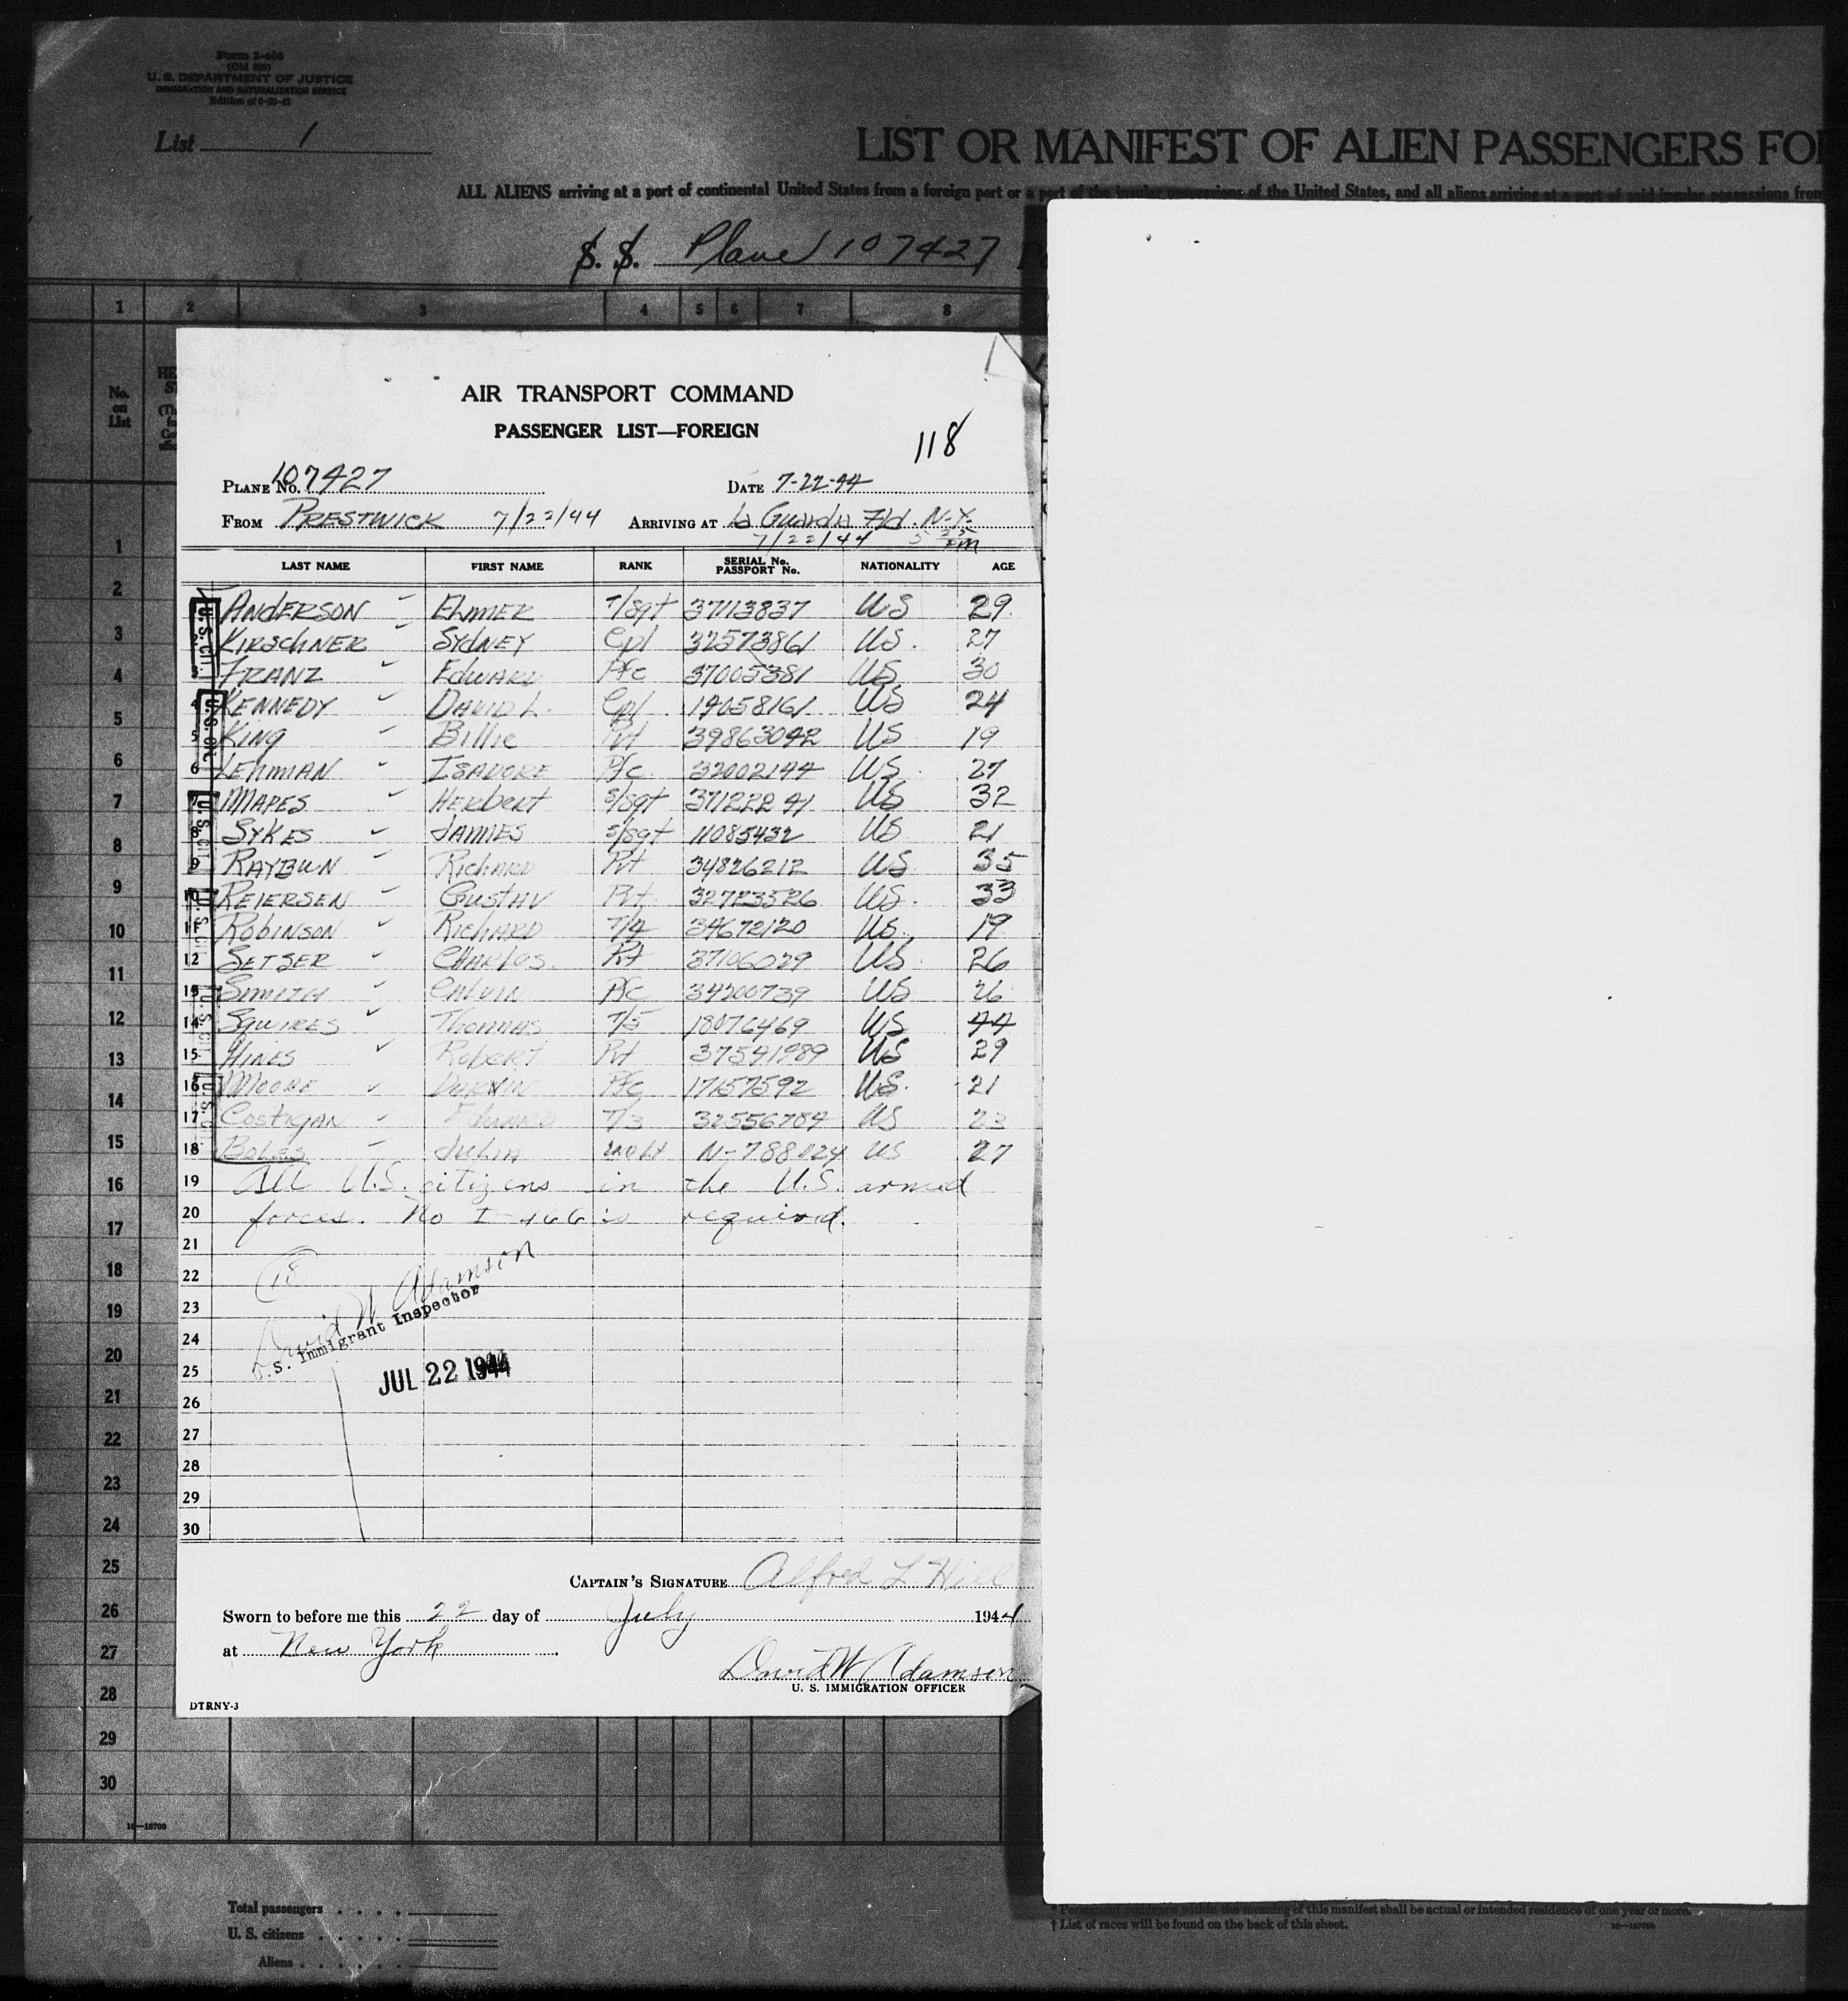 Form I-466
(Old 500)
U. S. DEPARTMENT OF JUSTICE
IMMIGRATION AND NATURALIZATION SERVICE
Edition of 6-20-42
List 1
LIST OR MANIFEST OF ALIEN PASSENGERS FO
ALL ALIENS arriving at a port of continental United States from a foreign port or a port of the insular possessions of the United States, and all aliens arriving at a port of said insular possessions from
S. S. Plane 107427
1 2 3 4 5 6 7 8
No. on List
AIR TRANSPORT COMMAND
PASSENGER LIST—FOREIGN
118
PLANE No. 107427 DATE 7-22-44
FROM PRESTWICK 7/22/44 ARRIVING AT La Guardia Fld. N.Y.
7/22/44 5 35 PM
LAST NAME FIRST NAME RANK SERIAL No. PASSPORT No. NATIONALITY AGE
ANDERSON ELMER T/Sgt 37113837 US 29
KIRSCHNER SYDNEY Cpl 32573861 US. 27
FRANZ EDWARD Pfc 37005381 US 30
4 KENNEDY DAVID L. Cpl 19058161 US 24
5 KING Billie Pvt 39863042 US 19
6 LEHMAN ISADORE Pfc. 32002144 US. 27
7 MAPES HERBERT S/Sgt 37122241 US 32
8 SYKES JAMES S/Sgt 11085432 US 21
9 RAYBUN RICHARD Pvt 34826212 US. 35
10 REIERSEN GUSTAV Pvt. 32723526 US. 33
11 ROBINSON RICHARD T/4 34672120 US. 19
12 SETSER CHARLES Pvt 37106029 US. 26
13 SMITH CALVIN Pfc 34200739 US 26
14 SQUIRES THOMAS T/5 18076469 US 44
15 HINES ROBERT Pvt 37541989 US 29
16 MOORE DARWIN Pfc 17157592 US. 21
17 COSTIGAN EDWARD T/3 32556784 US 23
18 BOLES JULIA N-788024 US 27
19 All U.S. citizens in the U.S. armed
20 forces. No I-466 is required.
21
22 18
23
24
25
26
27
28
29
30
David W Adamson
U.S. Immigrant Inspector
JUL 22 1944
CAPTAIN'S SIGNATURE Alfred L Hill
Sworn to before me this 22 day of July 1944
at New York
David W Adamson
U. S. IMMIGRATION OFFICER
DTRNY-3
1
2
3
4
5
6
7
8
9
10
11
12
13
14
15
16
17
18
19
20
21
22
23
24
25
26
27
28
29
30
16—18700
Total passengers
U. S. citizens
Aliens
* Permanent residence within the meaning of this manifest shall be actual or intended residence of one year or more.
† List of races will be found on the back of this sheet.